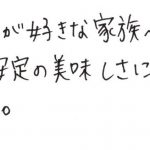 が好きな家族
安定の美味しさに
。